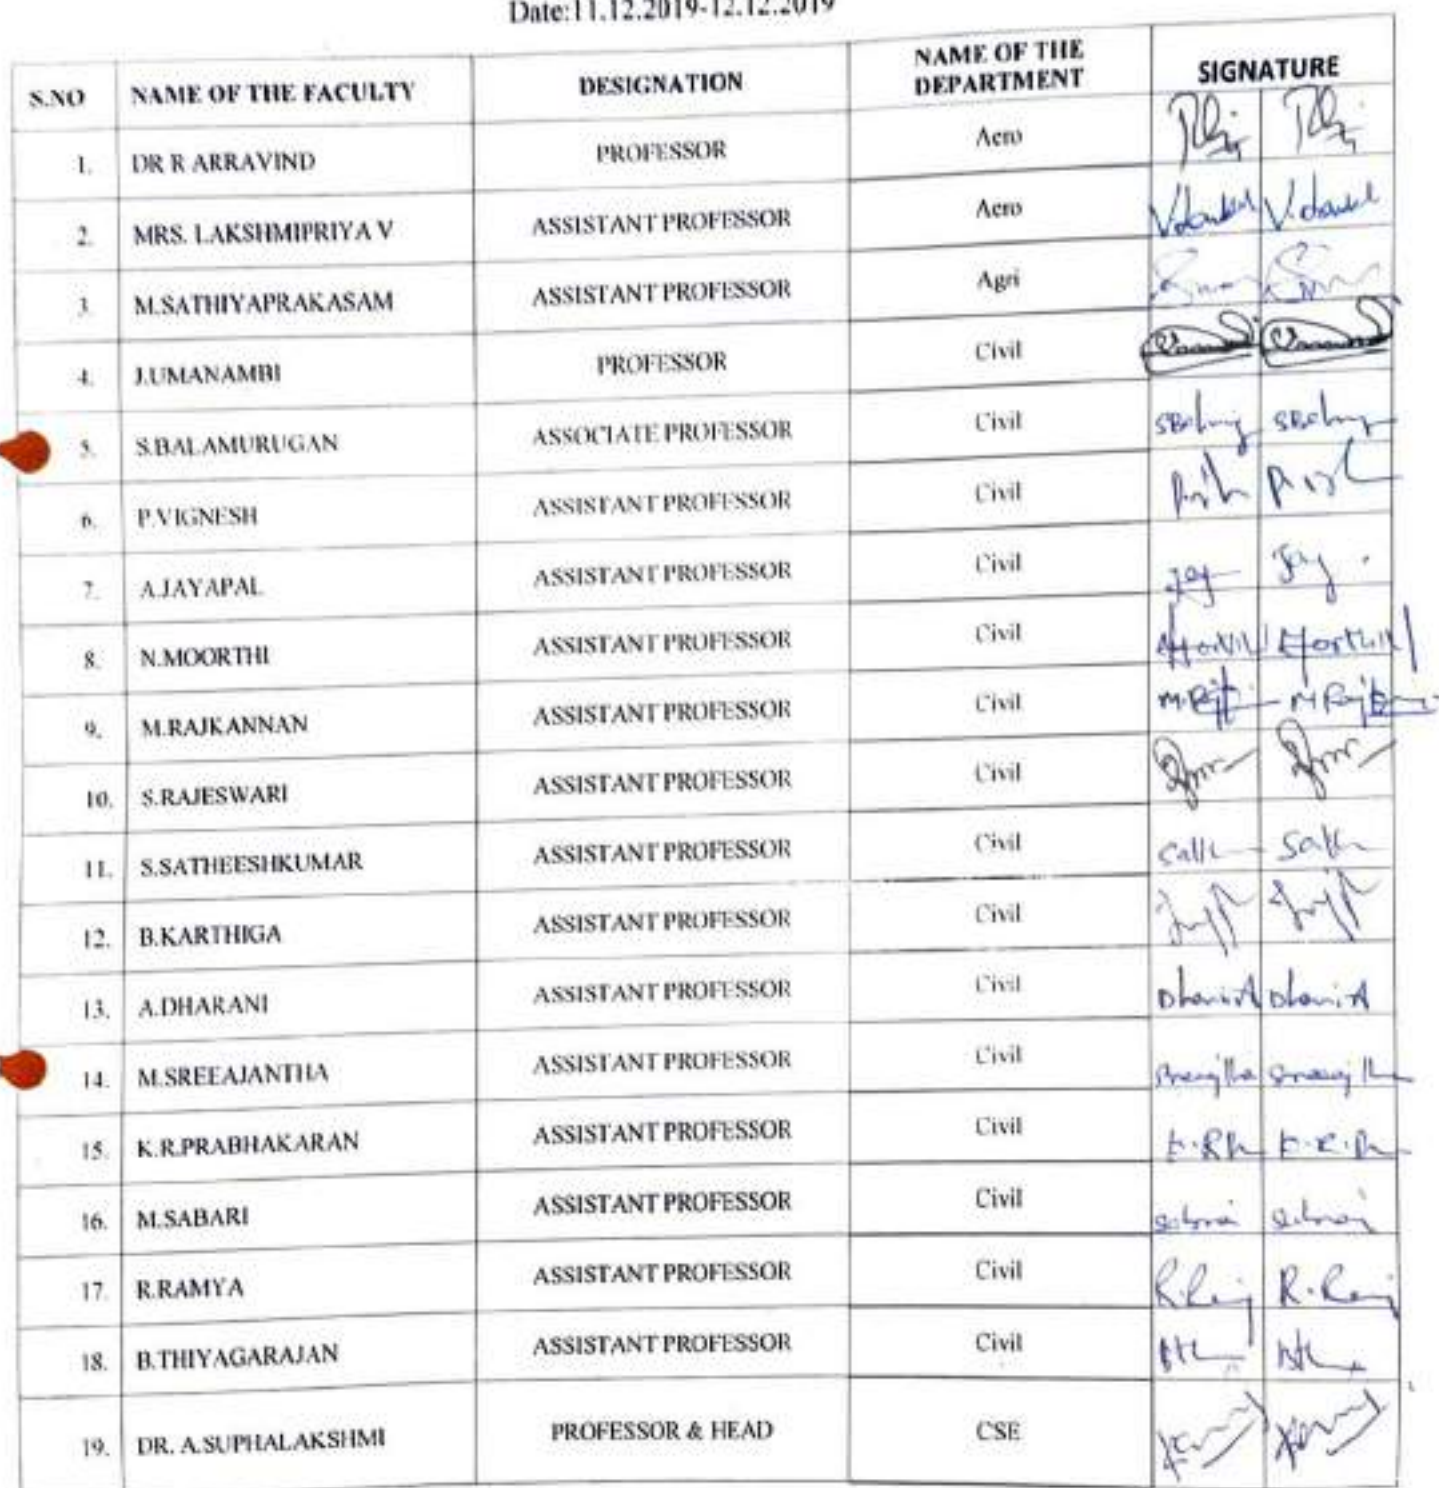 Date:11.12.2019-12.12.2019
S.NO NAME OF THE FACULTY DESIGNATION NAME OF THE DEPARTMENT SIGNATURE
1. DR R ARRAVIND PROFESSOR Aero
2. MRS. LAKSHMIPRIYA V ASSISTANT PROFESSOR Aero
3. M.SATHIYAPRAKASAM ASSISTANT PROFESSOR Agri
4. J.UMANAMBI PROFESSOR Civil
5. S.BALAMURUGAN ASSOCIATE PROFESSOR Civil
6. P.VIGNESH ASSISTANT PROFESSOR Civil
7. A.JAYAPAL ASSISTANT PROFESSOR Civil
8. N.MOORTHI ASSISTANT PROFESSOR Civil
9. M.RAJKANNAN ASSISTANT PROFESSOR Civil
10. S.RAJESWARI ASSISTANT PROFESSOR Civil
11. S.SATHEESHKUMAR ASSISTANT PROFESSOR Civil
12. B.KARTHIGA ASSISTANT PROFESSOR Civil
13. A.DHARANI ASSISTANT PROFESSOR Civil
14. M.SREEAJANTHA ASSISTANT PROFESSOR Civil
15. K.R.PRABHAKARAN ASSISTANT PROFESSOR Civil
16. M.SABARI ASSISTANT PROFESSOR Civil
17. R.RAMYA ASSISTANT PROFESSOR Civil
18. B.THIYAGARAJAN ASSISTANT PROFESSOR Civil
19. DR. A.SUPHALAKSHMI PROFESSOR & HEAD CSE